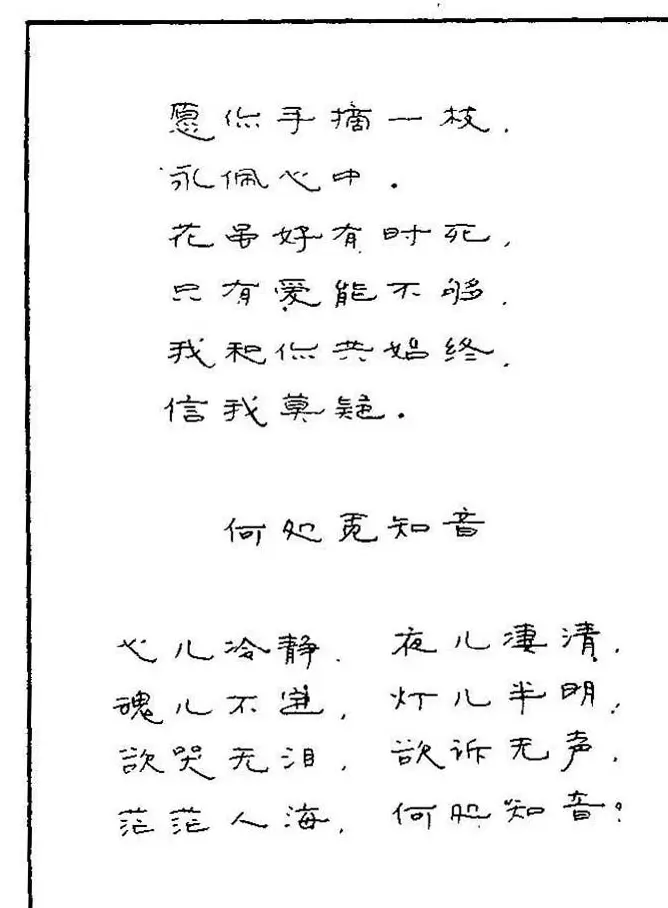 愿你手摘一枝,
永佩心中.
花虽好有时死,
只有爱能不够,
我和你共始终,
信我莫疑.
何处觅知音
心儿冷静. 夜儿凄清,
魂儿不定, 灯儿半明;
欲哭无泪, 欲诉无声,
茫茫人海, 何处知音?